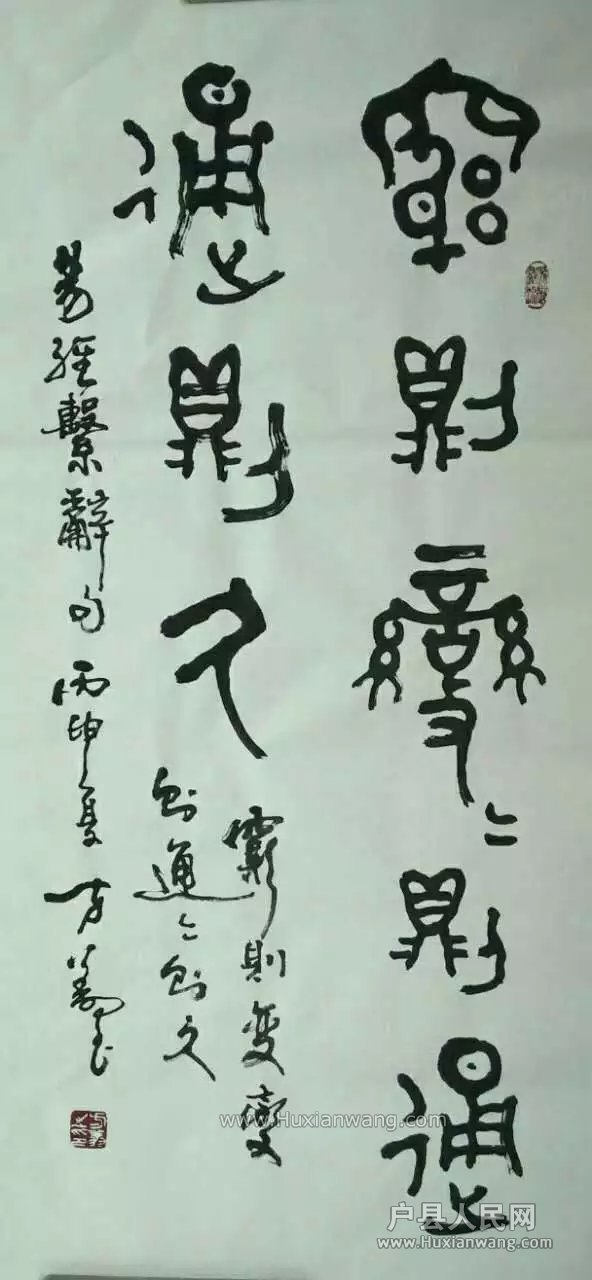 窮則變〻則通
通則久
窮則变變
則通〻則久
易經繫辭句 丙申夏
www.Huxianwang.com
户县人民网
www.Huxianwang.com